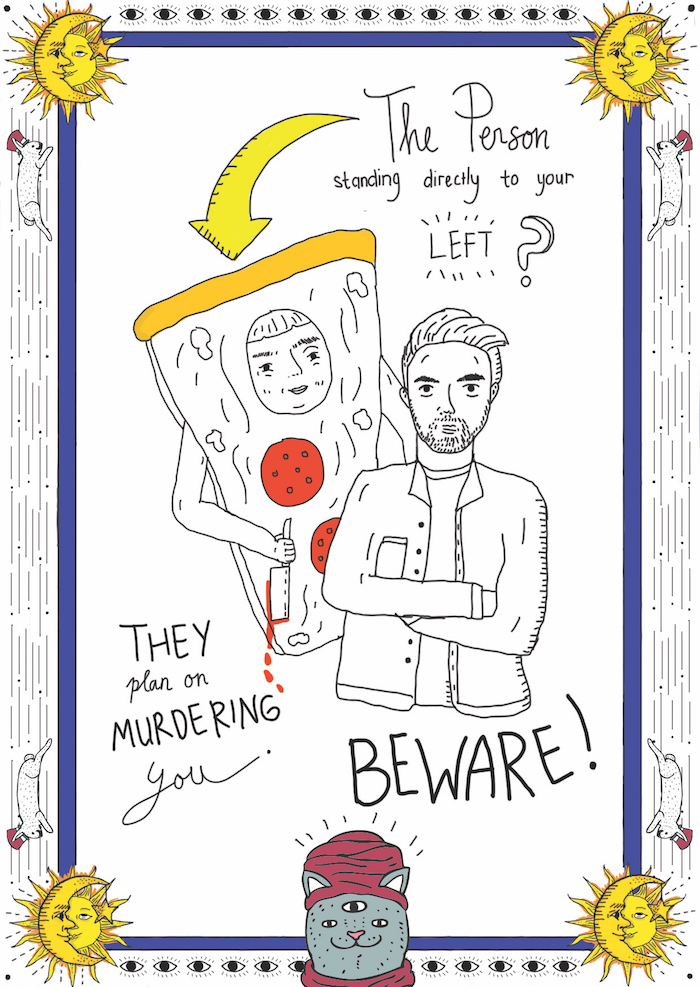 The Person
standing directly to your
LEFT?
THEY
plan on
MURDERING
you.
BEWARE!